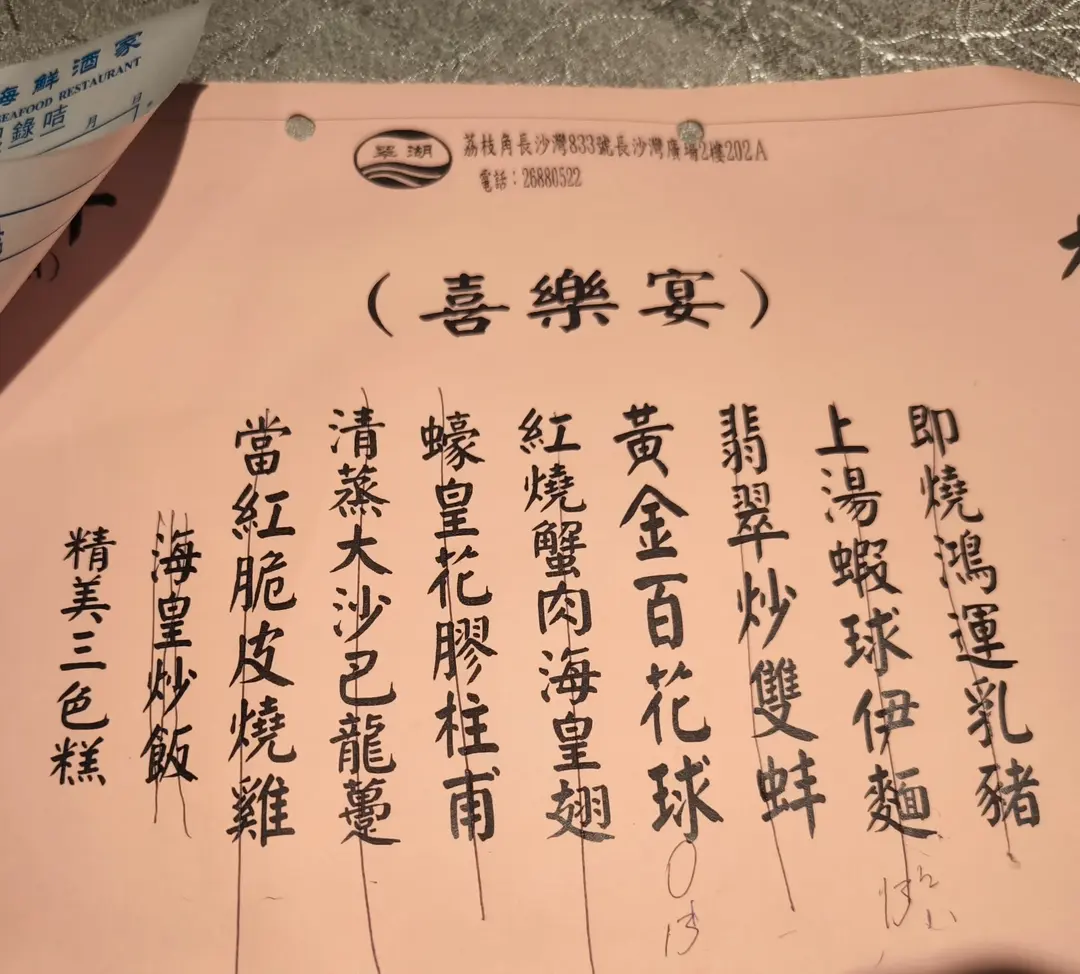 海鮮酒家
SEAFOOD RESTAURANT
錄咭 月 日
翠湖
荔枝角長沙灣833號長沙灣廣場2樓202A
電話：26880522
（喜樂宴）
即燒鴻運乳豬
上湯蝦球伊麵
翡翠炒雙蚌
黃金百花球
紅燒蟹肉海皇翅
蠔皇花膠柱甫
清蒸大沙巴龍躉
當紅脆皮燒雞
海皇炒飯
精美三色糕